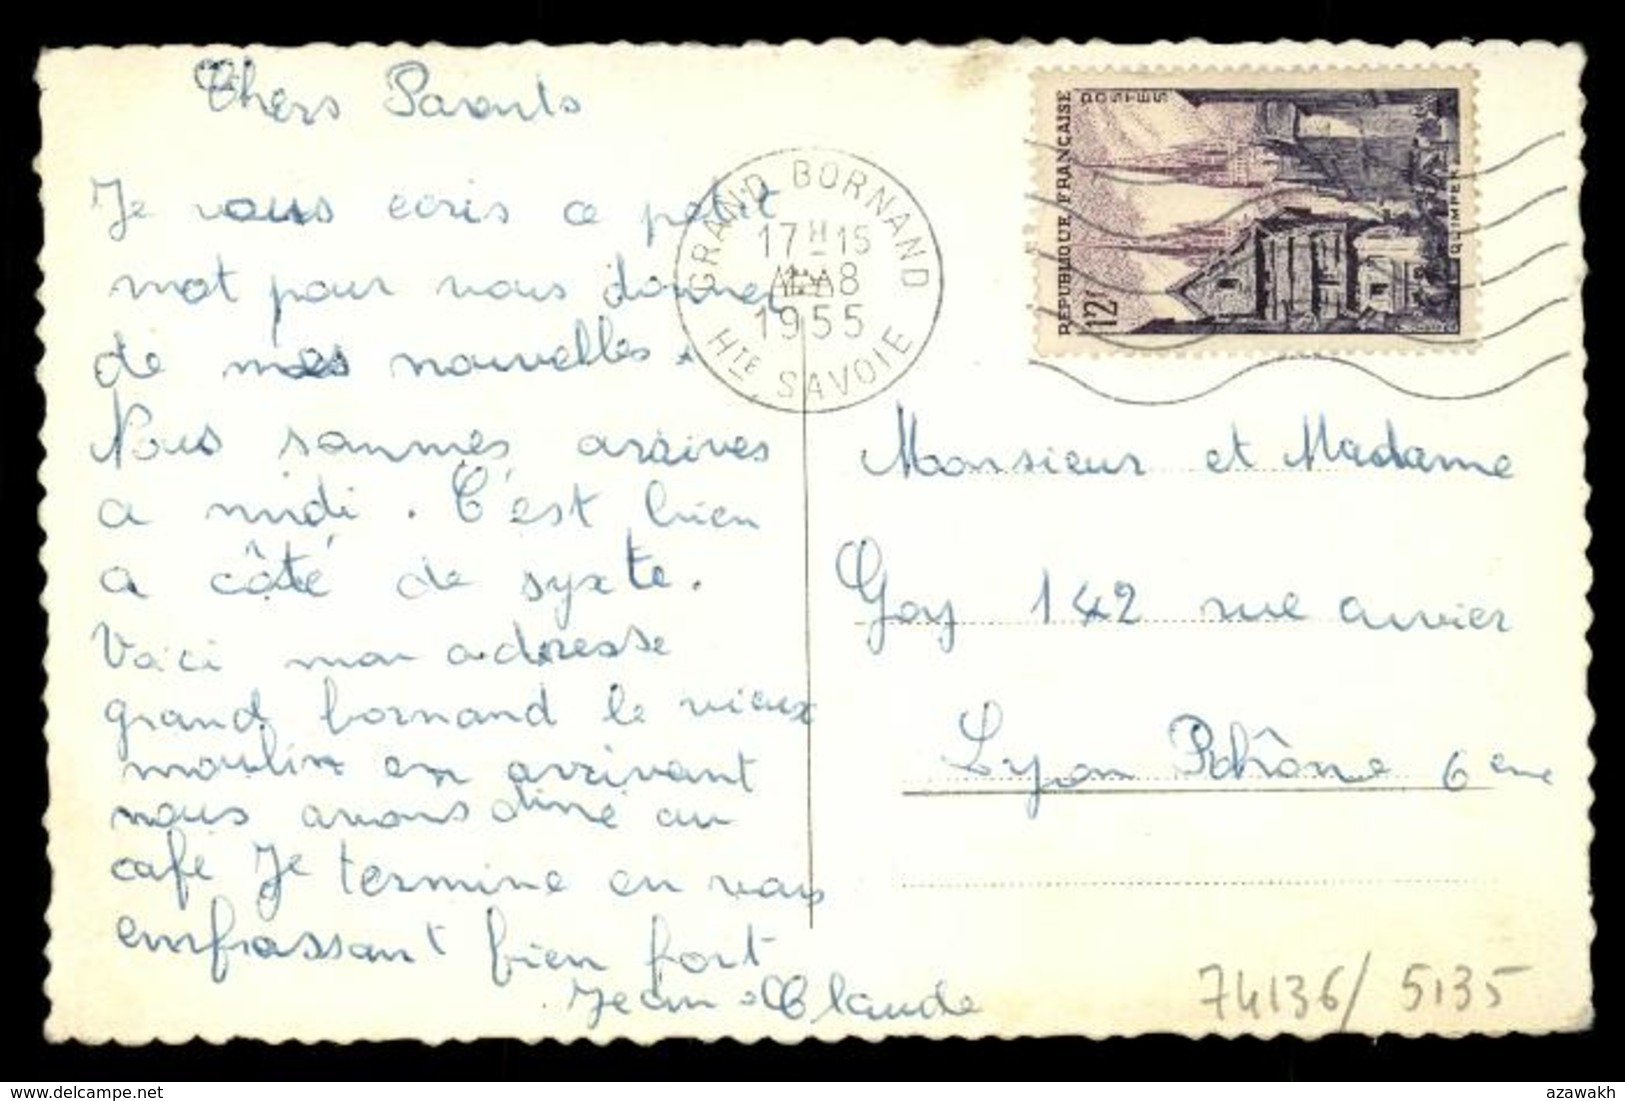 Chers Parents
Je vous ecris ce petit
mot pour vous donner
de mes nouvelles.
Nous sommes arrives
a midi. C'est bien
a côté de syxte.
Voici mon adresse
grand bornand le vieux
moulin en arrivant
nous avons diné au
café Je termine en vous
embrassant bien fort
Jean-Claude
GRAND BORNAND
17H15
8
1955
HTE SAVOIE
REPUBLIQUE FRANÇAISE
POSTES
12F
QUIMPER
Monsieur et Madame
Goy 142 rue cuvier
Lyon Rhône 6 eme
74136/5135
delcampe.net
azawakh